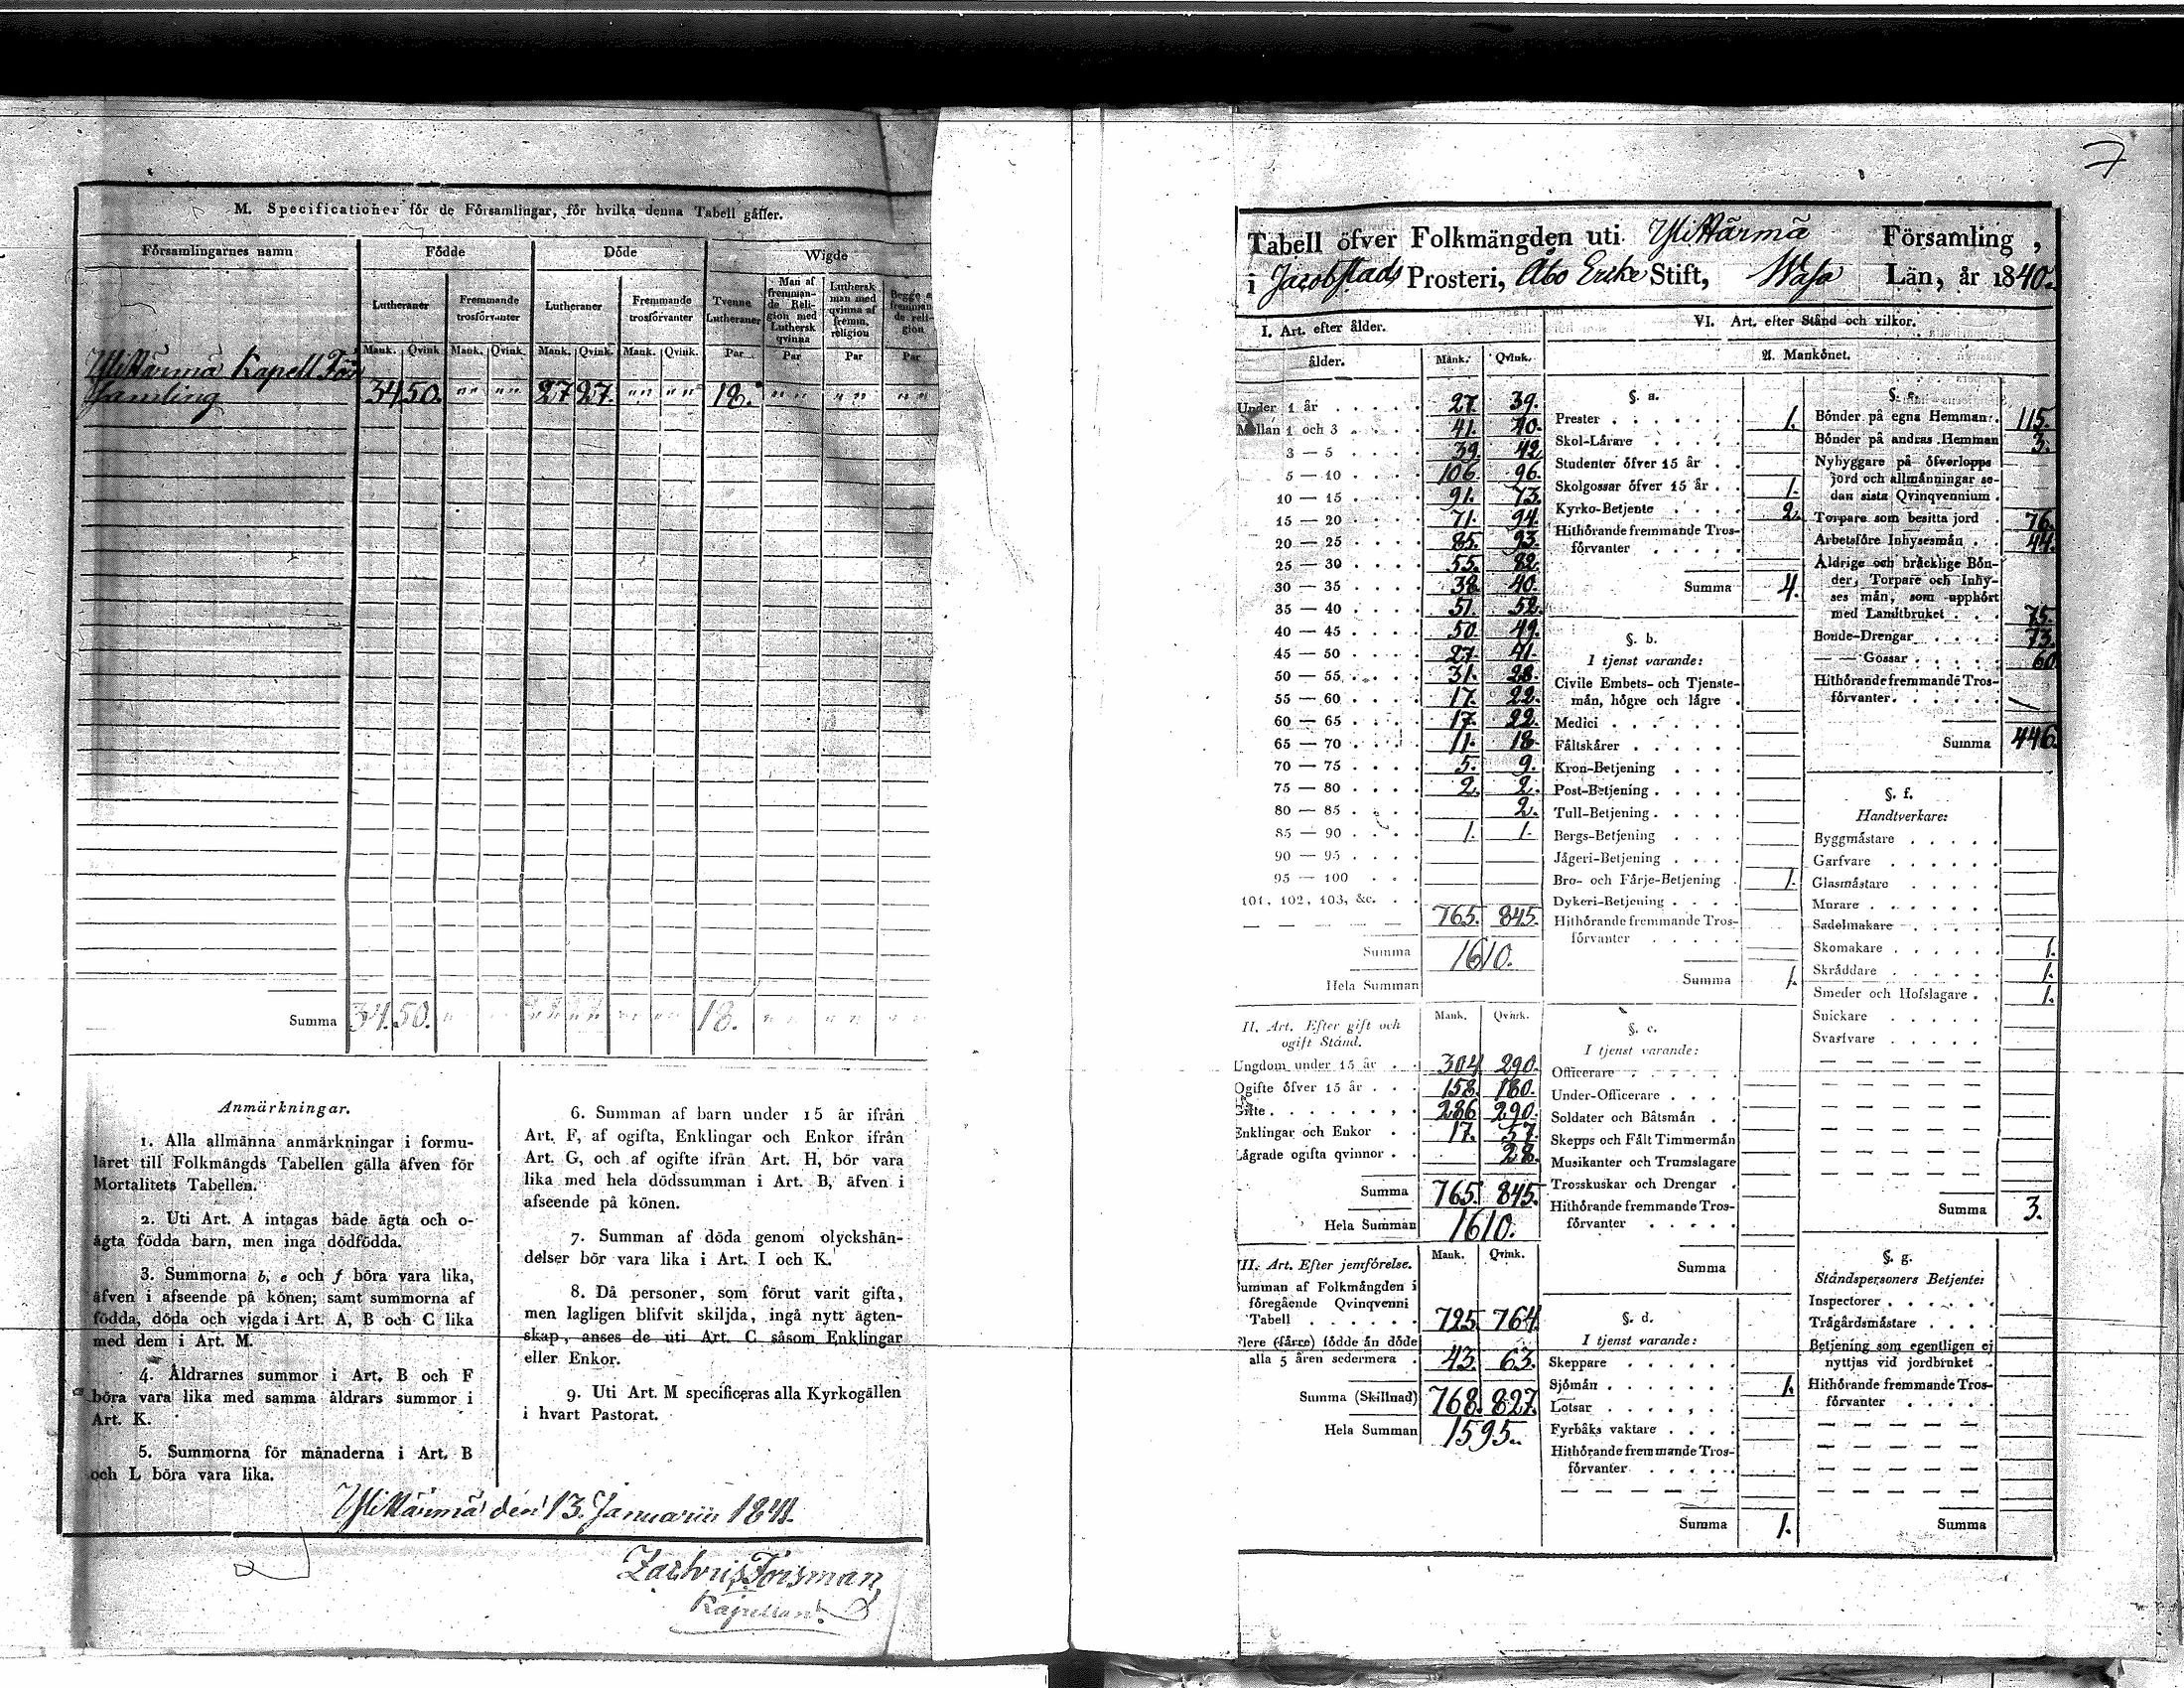 M. Specificationer för de Församlingar, för hvilka denna Tabell gäller.
Församlingarnes namn
Födde
Döde
Wigde
Lutheraner
Fremmande trosförvanter
Lutheraner
Fremmande trosförvanter
Tvenne Lutheraner
Man af fremmande Religion med Luthersk qvinna
Luthersk man med qvinna af fremm. religion
Begge af fremmande religion
Mank. Qvink. Mank. Qvink. Mank. Qvink. Mank. Qvink. Par Par Par Par
Ylihärmä Kapell För
samling 34. 50. " " " " 27 27. " " " " 18. " " " " " "
Summa 34. 50. " " 27 27 " " " " 18. " " " " " "
Anmärkningar.
1. Alla allmänna anmärkningar i formu-
läret till Folkmängds Tabellen gälla äfven för
Mortalitets Tabellen.
2. Uti Art. A intagas både ägta och o-
ägta födda barn, men inga dödfödda.
3. Summorna b, e och f böra vara lika,
äfven i afseende på könen; samt summorna af
födda, döda och vigda i Art. A, B och C lika
med dem i Art. M.
4. Åldrarnes summor i Art. B och F
böra vara lika med samma åldrars summor i
Art. K.
5. Summorna för månaderna i Art. B
och L böra vara lika.
6. Summan af barn under 15 år ifrån
Art. F, af ogifta, Enklingar och Enkor ifrån
Art. G, och af ogifte ifrån Art. H, bör vara
lika med hela dödssumman i Art. B, äfven i
afseende på könen.
7. Summan af döda genom olyckshän-
delser bör vara lika i Art. I och K.
8. Då personer, som förut varit gifta,
men lagligen blifvit skiljda, ingå nytt ägten-
skap, anses de uti Art. C såsom Enklingar
eller Enkor.
9. Uti Art. M specificeras alla Kyrkogällen
i hvart Pastorat.
Ylihärmä den 13. Januarii 1841.
Zachris Forsman,
Kapellan.
7
Tabell öfver Folkmängden uti Ylihärmä Församling,
i Jacobstads Prosteri, Åbo Erke Stift, Wasa Län, år 1840.
I. Art. efter ålder.
ålder. Mank. Qvink.
Under 1 år 27. 39.
Mellan 1 och 3 41. 40.
3 — 5 39. 42
5 — 10 106. 96.
10 — 15 91. 73.
15 — 20 71. 94.
20 — 25 85. 93.
25 — 30 55. 82.
30 — 35 38. 40.
35 — 40 51. 52.
40 — 45 50. 49.
45 — 50 27. 41.
50 — 55 31. 28.
55 — 60 17. 22.
60 — 65 17. 22.
65 — 70 11. 18.
70 — 75 5. 9.
75 — 80 2. 2.
80 — 85 2.
85 — 90 1. 1.
90 — 95
95 — 100
101, 102, 103, &c.
765. 845.
Summa 1610.
Hela Summan
II. Art. Efter gift och
ogift Stånd. Mank. Qvink.
Ungdom under 15 år 304 290.
Ogifte öfver 15 år 158. 180.
Gifte 286 290.
Enklingar och Enkor 17. 57.
Lägrade ogifta qvinnor 28.
Summa 765. 845.
Hela Summan 1610.
III. Art. Efter jemförelse. Mank. Qvink.
Summan af Folkmängden i
föregående Qvinqvenni
Tabell 725. 764.
Flere (färre) födde än döde
alla 5 åren sedermera 43. 63.
Summa (Skillnad) 768. 827.
Hela Summan 1595.
VI. Art. efter Stånd och vilkor.
A. Mankönet.
§. a.
Prester 1.
Skol-Lärare
Studenter öfver 15 år
Skolgossar öfver 15 år 1.
Kyrko-Betjente 2.
Hithörande fremmande Tros-
förvanter
Summa 4.
§. b.
I tjenst varande:
Civile Embets- och Tjenste-
män, högre och lägre
Medici
Fältskärer
Kron-Betjening
Post-Betjening
Tull-Betjening
Bergs-Betjening
Jägeri-Betjening
Bro- och Färje-Betjening 1.
Dykeri-Betjening
Hithörande fremmande Tros-
förvanter
Summa 1.
§. c.
I tjenst varande:
Officerare
Under-Officerare
Soldater och Båtsmän
Skepps och Fält Timmermän
Musikanter och Trumslagare
Trosskuskar och Drengar
Hithörande fremmande Tros-
förvanter
Summa
§. d.
I tjenst varande:
Skeppare
Sjömän 1.
Lotsar
Fyrbåks vaktare
Hithörande fremmande Tros-
förvanter
Summa 1.
§. e.
Bönder på egna Hemman 115.
Bönder på andras Hemman 3.
Nybyggare på öfverlopps
jord och allmänningar se-
dan sista Qvinqvennium
Torpare som besitta jord 76.
Arbetsföre Inhysesmän 44.
Åldrige och bräcklige Bön-
der, Torpare och Inhy-
ses män, som upphört
med Landtbruket 75.
Bonde-Drengar 73.
— — Gossar 60
Hithörande fremmande Tros-
förvanter
Summa 446.
§. f.
Handtverkare:
Byggmästare
Garfvare
Glasmästare
Murare
Sadelmakare
Skomakare 1.
Skräddare 1.
Smeder och Hofslagare 1.
Snickare
Svarfvare
Summa 3.
§. g.
Ståndspersoners Betjente:
Inspectorer
Trägårdsmästare
Betjening som egentligen ej
nyttjas vid jordbruket
Hithörande fremmande Tros-
förvanter
Summa